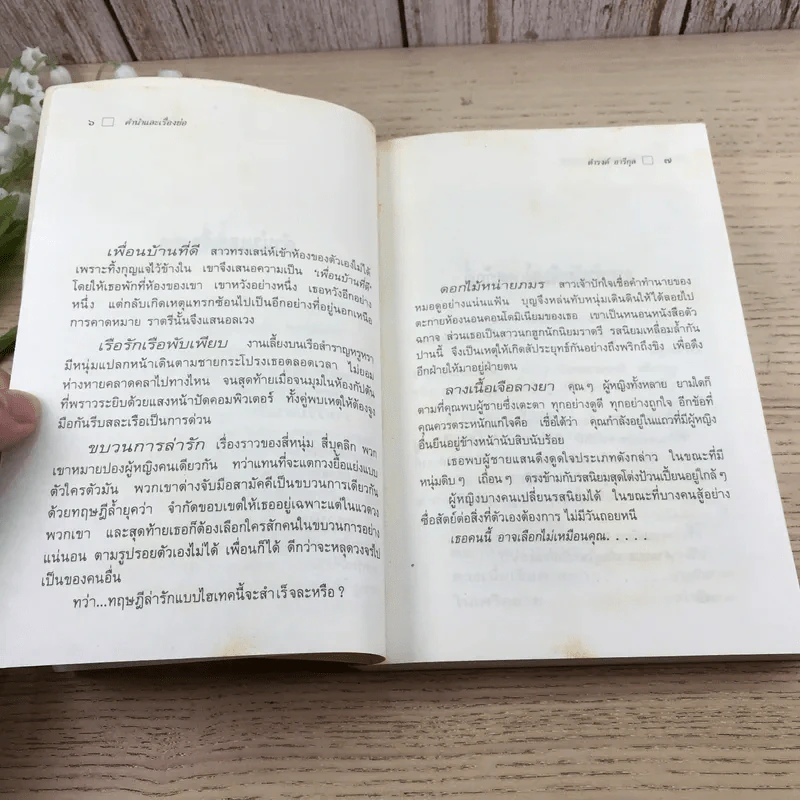 ๖ คำนำและเรื่องย่อ
เพื่อนบ้านที่ดี สาวทรงเสน่ห์เข้าห้องของตัวเองไม่ได้
เพราะทิ้งกุญแจไว้ข้างใน เขาจึงเสนอความเป็น 'เพื่อนบ้านที่ดี'
โดยให้เธอพักที่ห้องของเขา เขาหวังอย่างหนึ่ง เธอหวังอีกอย่าง
หนึ่ง แต่กลับเกิดเหตุแทรกซ้อนไปเป็นอีกอย่างที่อยู่นอกเหนือ
การคาดหมาย ราตรีนั้นจึงแสนอลเวง
เรือรักเรือพับเพียบ งานเลี้ยงบนเรือสำราญหรูหรา
มีหนุ่มแปลกหน้าเดินตามชายกระโปรงเธอตลอดเวลา ไม่ยอม
ห่างหายคลาดคลาไปทางไหน จนสุดท้ายเมื่อจนมุมในห้องกัปตัน
ที่พราวระยิบด้วยแสงหน้าปัดคอมพิวเตอร์ ทั้งคู่พบเหตุให้ต้องจูง
มือกันรีบสละเรือเป็นการด่วน
ขบวนการล่ารัก เรื่องราวของสี่หนุ่ม สี่บุคลิก พวก
เขาหมายปองผู้หญิงคนเดียวกัน ทว่าแทนที่จะแตกวงยื้อแย่งแบบ
ตัวใครตัวมัน พวกเขาต่างจับมือสามัคคีเป็นขบวนการเดียวกัน
ด้วยทฤษฎีล้ำยุคว่า จำกัดขอบเขตให้เธออยู่เฉพาะแต่ในแวดวง
พวกเขา และสุดท้ายเธอก็ต้องเลือกใครสักคนในขบวนการอย่าง
แน่นอน ตามรูปรอยตัวเองไม่ได้ เพื่อนก็ได้ ดีกว่าจะหลุดวงจรไป
เป็นของคนอื่น
ทว่า...ทฤษฎีล่ารักแบบไฮเทคนี้จะสำเร็จละหรือ ?
ดำรงค์ อารีกุล ๗
ดอกไม้หน่ายภมร สาวเจ้าปักใจเชื่อคำทำนายของ
หมอดูอย่างแน่นแฟ้น บุญจึงหล่นทับหนุ่มเดินดินให้ได้ลอยไป
ตะกายห้องนอนคอนโดมิเนียมของเธอ เขาเป็นหนอนหนังสือตัว
ฉกาจ ส่วนเธอเป็นสาวนกฮูกนักนิยมราตรี รสนิยมเหลื่อมล้ำกัน
ปานนี้ จึงเป็นเหตุให้เกิดสัประยุทธ์กันอย่างถึงพริกถึงขิง เพื่อดึง
อีกฝ่ายให้มาอยู่ฝ่ายตน
ลางเนื้อเจือลางยา คุณๆ ผู้หญิงทั้งหลาย ยามใดก็
ตามที่คุณพบผู้ชายซึ่งเตะตา ทุกอย่างดูดี ทุกอย่างถูกใจ อีกข้อที่
คุณควรตระหนักแก่ใจคือ เชื่อได้ว่า คุณกำลังอยู่ในแถวที่มีผู้หญิง
อื่นยืนอยู่ข้างหน้านับสิบนับร้อย
เธอพบผู้ชายแสนดึงดูดใจประเภทดังกล่าว ในขณะที่มี
หนุ่มดิบๆ เถื่อนๆ ตรงข้ามกับรสนิยมสุดโต่งป้วนเปี้ยนอยู่ใกล้ๆ
ผู้หญิงบางคนเปลี่ยนรสนิยมได้ ในขณะที่บางคนสู้อย่าง
ซื่อสัตย์ต่อสิ่งที่ตัวเองต้องการ ไม่มีวันถอยหนี
เธอคนนี้ อาจเลือกไม่เหมือนคุณ. . . . .